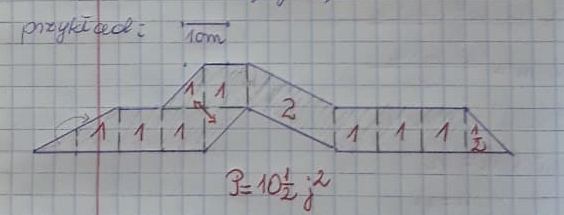 przykład:
10m
1 1
1 1 1 2 1 1 1 1/2
P=10 1/2 j²